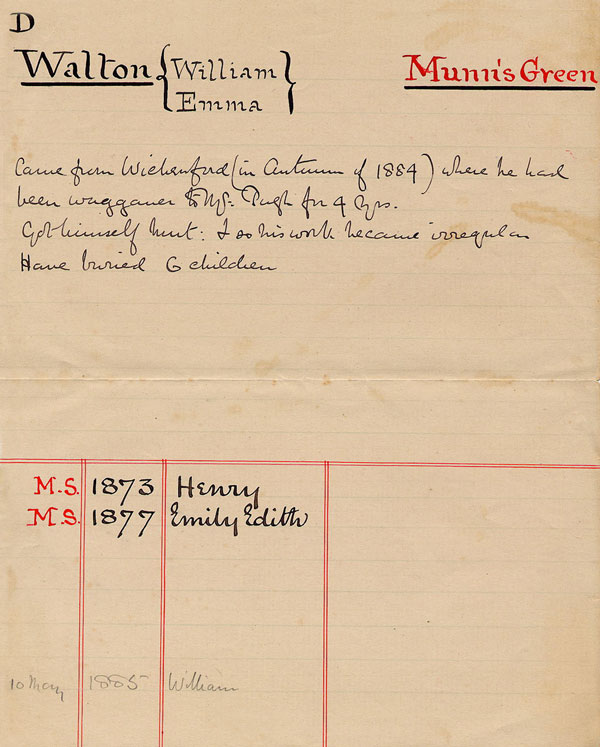 D
Walton {William Munn's Green
Emma}
Came from Wichenford (in Autumn of 1884) where he had
been waggoner to Mr. Pugh for 4 yrs.
Got himself hurt: & so his work became irregular
Have buried 6 children
M.S. 1873 Henry
M.S. 1877 Emily Edith
10 May 1885 William